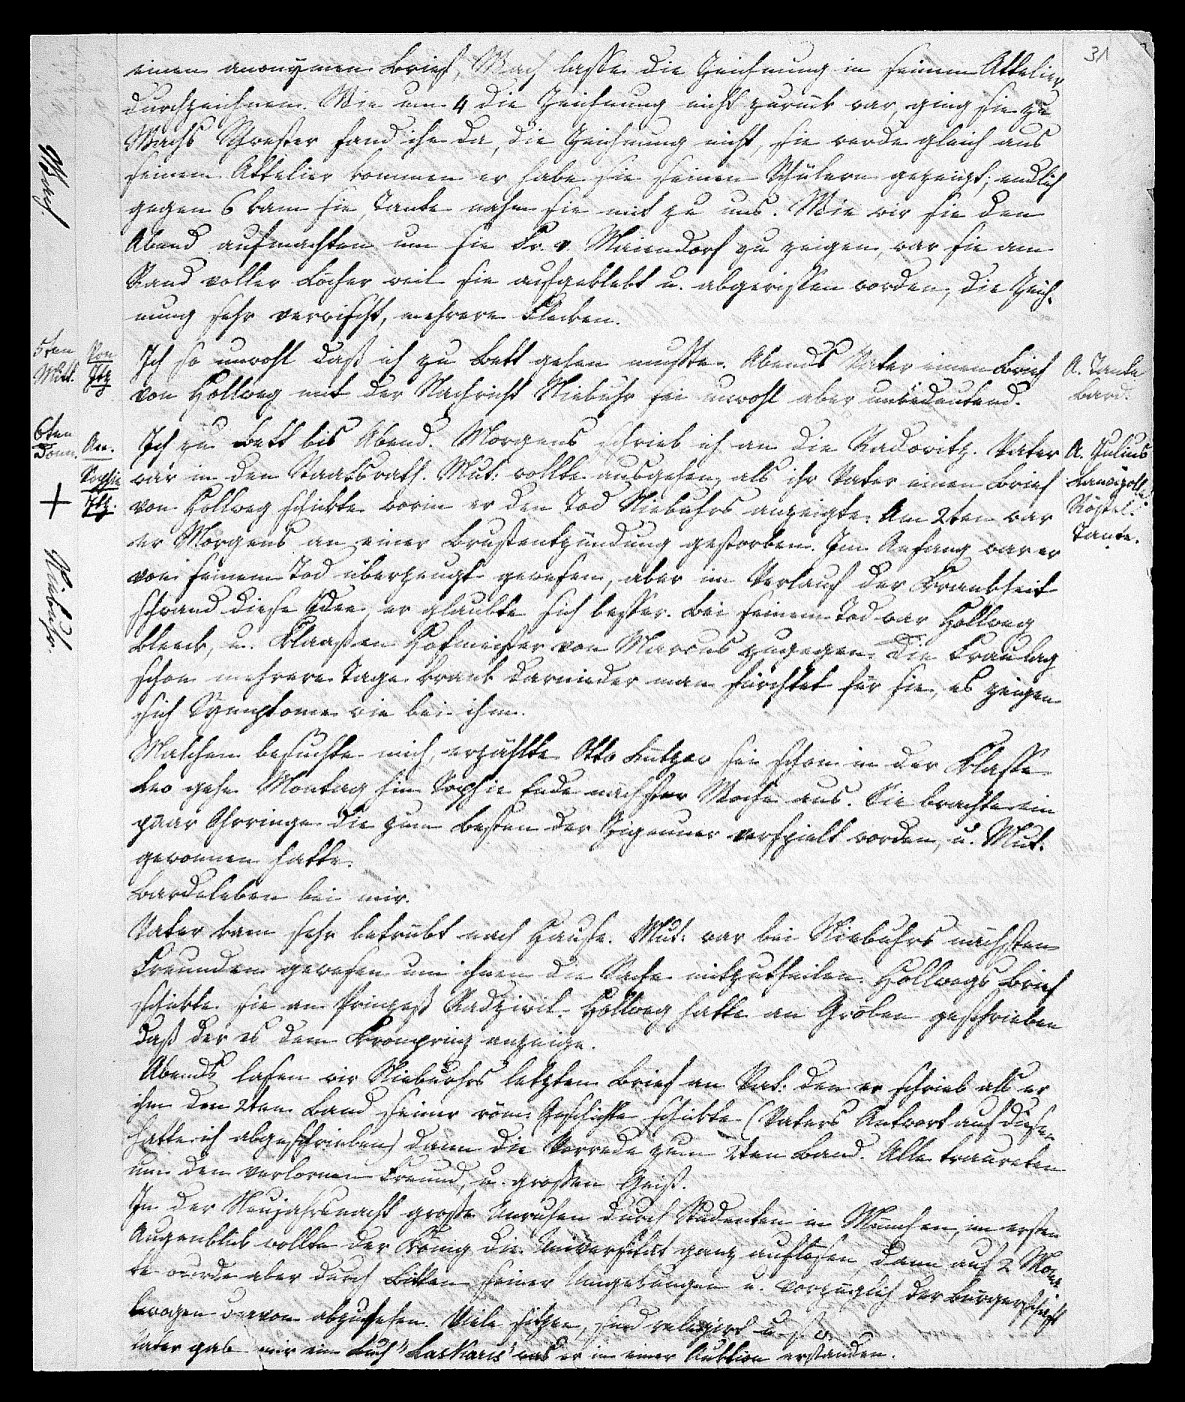 31
einen anonymen Brief, Wach lasse die Zeichnung in seinem Attelier
durchzeichnen. Wie um 4 die Zeichnung nicht zurück war, ging sie zu
Wachs Schwester fand ihn da, die Zeichnung nicht, sie werde gleich aus
seinem Attelier kommen er habe sie seinen Schülern gezeigt; endlich
gegen 6 kam sie, Tante nahm sie mit zu uns. Wie wir sie den
Abend aufmachten um sie Fr. v. Maiendorf zu zeigen, war sie am
Rand voller Löcher weil sie aufgeklebt u. abgerissen worden, die Zeich-
nung sehr verwischt, mehrere Flecken.
Wach
5ten
Mitt.
Ich so unwohl daß ich zu Bett gehen mußte. Abends Vater einen Brief
von Hollweg mit der Nachricht Niebuhr sei unwohl aber unbedeutend.
A. Tante
Bard.
6ten
Donn.
Sophie
Ich zu Bett bis Abend. Morgens schrieb ich an die Radowitz. Vater
war in den Staatsrath. Mut: wollte ausgehen, als ihr Vater einen Brief
von Hollweg schickte worin er den Tod Niebuhrs anzeigte. Am 2ten war
er Morgens an einer Brustentzündung gestorben. Im Anfang war er
von seinem Tod überzeugt gewesen, aber im Verlauf der Krankheit
schwand diese Idee, er glaubte sich besser. Bei seinem Tod war Hollweg
Bleek, u. Klaaßen Hofmeister von Marcus zugegen. Die Frau lag
schon mehrere Tage krank darnieder man fürchtet für sie, es zeigen
sich Symptome wie bei ihm.
A. Julius
Lancizolle
Röstel
Tante.
Niebuhr.
Malchen besuchte mich, erzählte Otto sei schon in der Klasse
Leo gehe Montag hin Sophie Ende nächster Woche aus. Sie brachte ein
paar Ohrringe die zum Besten der Zigeuner verspielt worden, u. Mut:
gewonnen hatte.
Bardeleben bei mir.
Vater kam sehr betrübt nach Hause. Mut: war bei Niebuhrs nächsten
Freunden gewesen um ihnen die Sache mitzutheilen. Hollwegs Brief
schickte sie an Prinzeß Radzivil. Hollweg hatte an Gröben geschrieben
daß der es dem Kronprinz anzeige.
Abends lasen wir Niebuhrs letzten Brief an Vat: den er schrieb als er
ihm den 2ten Band seiner röm: Geschichte schickte (Vaters Antwort auf diesen
hatte ich abgeschrieben) dann die Vorrede zum 2ten Band. Alle trauerten
um den verlornen Freund, u. großen Geist.
In der Neujahrsnacht große Unruhen durch Studenten in München, im ersten
Augenblick wollte der König die Universität ganz auflösen, dann auf 2 Mona
te wurde aber durch Bitten seiner Umgebungen u. vorzüglich der Bürgerschaft
bewogen davon abzustehen. Viele sitzen, sind relegirt u. s. w.
Vater gab mir ein Buch "Laskaris" was er in einer Auktion erstanden.